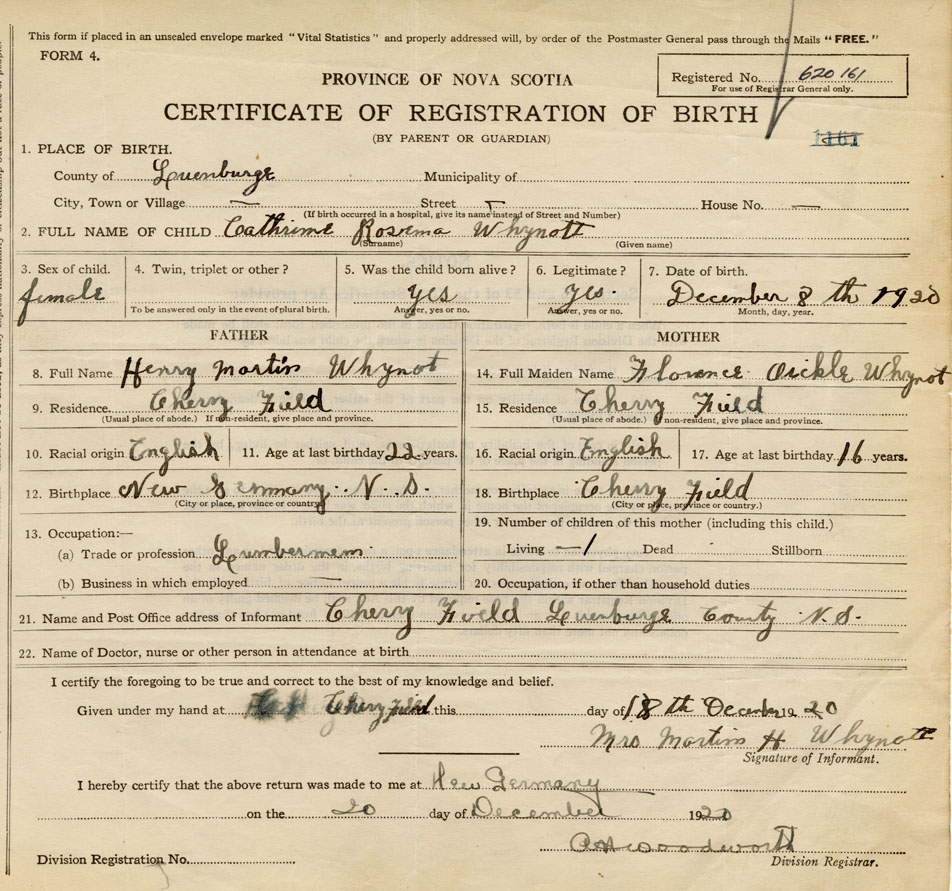 This form if placed in an unsealed envelope marked "Vital Statistics" and properly addressed will, by order of the Postmaster General pass through the Mails "FREE."
FORM 4.
Registered No. 620161
For use of Registrar General only.
PROVINCE OF NOVA SCOTIA
CERTIFICATE OF REGISTRATION OF BIRTH
(BY PARENT OR GUARDIAN)
1161
1. PLACE OF BIRTH.
County of Luenburge Municipality of
City, Town or Village — Street — House No. —
(If birth occurred in a hospital, give its name instead of Street and Number)
2. FULL NAME OF CHILD Cathrine Rosema Whynott
(Surname) (Given name)
3. Sex of child. 4. Twin, triplet or other? 5. Was the child born alive? 6. Legitimate? 7. Date of birth.
female yes yes. December 8th 1920
To be answered only in the event of plural birth. Answer, yes or no. Answer, yes or no. Month, day, year.
FATHER MOTHER
8. Full Name Henry Martin Whynot 14. Full Maiden Name Florence Oickle Whynot
9. Residence Cherry Field 15. Residence Cherry Field
(Usual place of abode.) If non-resident, give place and province. (Usual place of abode.) If non-resident, give place and province.
10. Racial origin English 11. Age at last birthday 22 years. 16. Racial origin English 17. Age at last birthday 16 years.
12. Birthplace New Germany. N. S. 18. Birthplace Cherry Field
(City or place, province or country.) (City or place, province or country.)
13. Occupation:— 19. Number of children of this mother (including this child.)
(a) Trade or profession Lumbermem Living — 1 Dead Stillborn
(b) Business in which employed — 20. Occupation, if other than household duties
21. Name and Post Office address of Informant Cherry Field Luenburge County N.S.
22. Name of Doctor, nurse or other person in attendance at birth
I certify the foregoing to be true and correct to the best of my knowledge and belief.
Given under my hand at Chery Field this day of 18th December 1920
Mrs Martin H Whynott
Signature of Informant.
I hereby certify that the above return was made to me at New Germany
on the 20 day of December 1920
Woodworth
Division Registration No. Division Registrar.